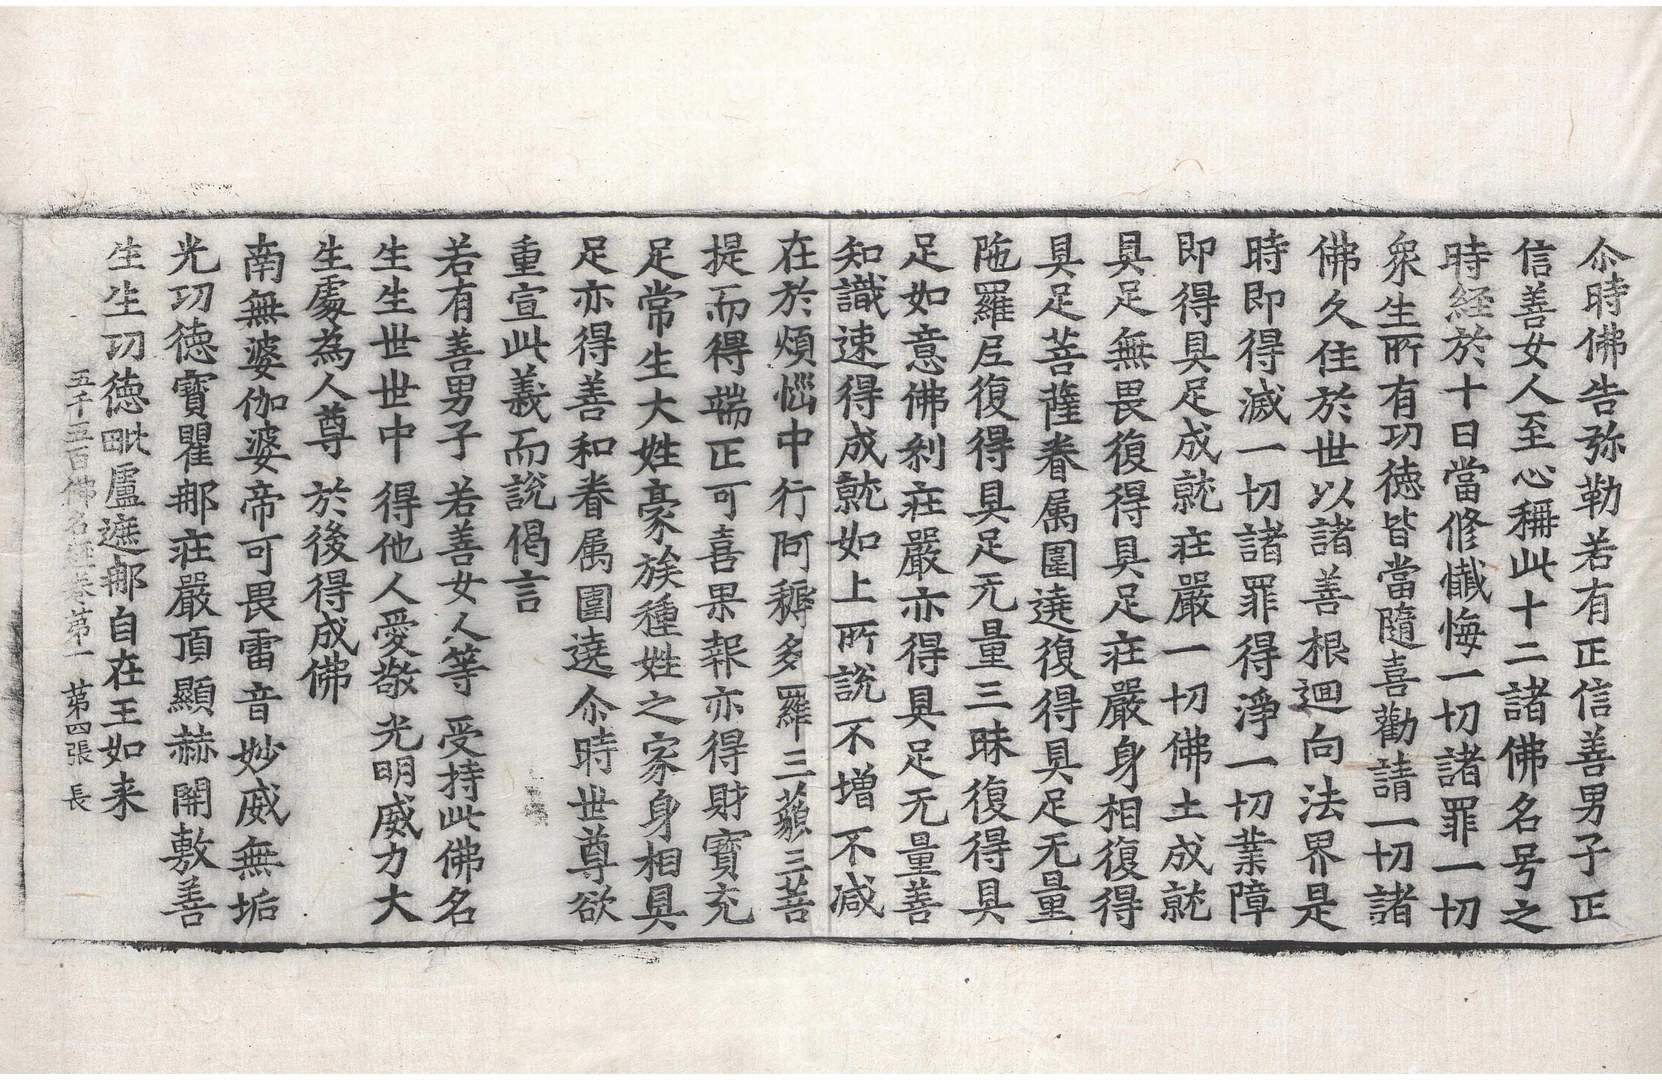 尒時佛告弥勒若有正信善男子正
信善女人至心稱此十二諸佛名号之
時経於十日當修懺悔一切諸罪一切
衆生所有功徳皆當隨喜勸請一切諸
佛久住於世以諸善根迴向法界是
時即得滅一切諸罪得淨一切業障
即得具足成就莊嚴一切佛土成就
具足無畏復得具足莊嚴身相復得
具足菩薩眷属圍遶復得具足无量
陁羅尼復得具足无量三昧復得具
足如意佛刹莊嚴亦得具足无量善
知識速得成就如上所說不增不减
在於煩惱中行阿耨多羅三藐三菩
提而得端正可喜果報亦得財寳充
足常生大姓豪族種姓之家身相具
足亦得善和眷属圍遶尒時世尊欲
重宣此義而說偈言
若有善男子 若善女人等 受持此佛名
生生世世中 得他人愛敬 光明威力大
生處為人尊 於後得成佛
南無婆伽婆帝可畏雷音妙威無垢
光功徳寳瞿那莊嚴頂顯赫開敷善
生生功徳毗盧遮那自在王如来
五千五百佛名経卷苐一 苐四張 長